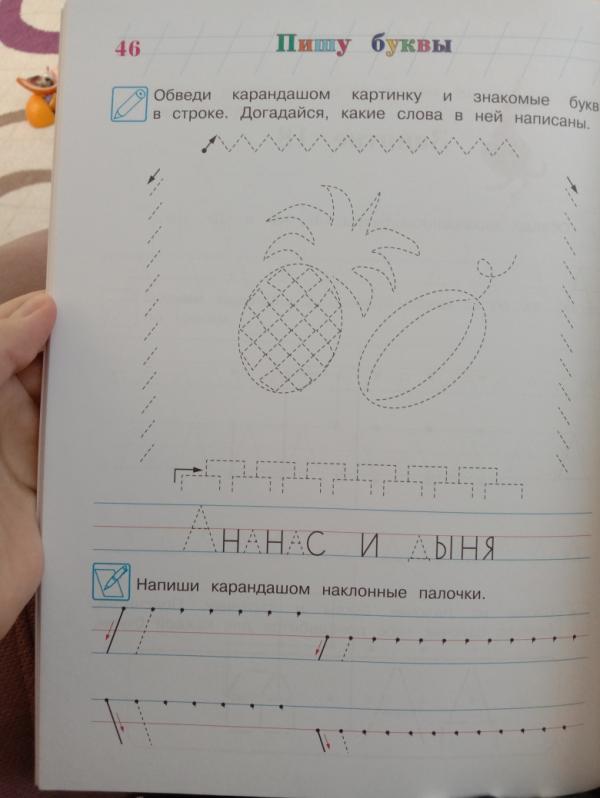 46
Пишу буквы
Обведи карандашом картинку и знакомые букв
в строке. Догадайся, какие слова в ней написаны.
Ананас и дыня
Напиши карандашом наклонные палочки.